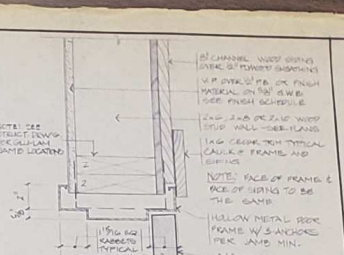 8" CHANNEL WOOD SIDING
OVER 1/2" PLYWOOD SHEATHING
V.P. OVER 1/2" P.B. OR FINISH
MATERIAL ON 5/8" G.W.B.
SEE FINISH SCHEDULE
2x6, 2x8 OR 2x10 WOOD
STUD WALL - SEE PLANS
1x6 CEDAR TRIM TYPICAL
CAULK @ FRAME AND
SIDING
NOTE: FACE OF FRAME &
FACE OF SIDING TO BE
THE SAME
HOLLOW METAL DOOR
FRAME W/ 3 ANCHORS
PER JAMB MIN.
NOTE: SEE
STRUCT. DRWGS
FOR GLU-LAM
JAMB LOCATIONS
1
2
2"
1 5/16 SQ
RABBETS
TYPICAL